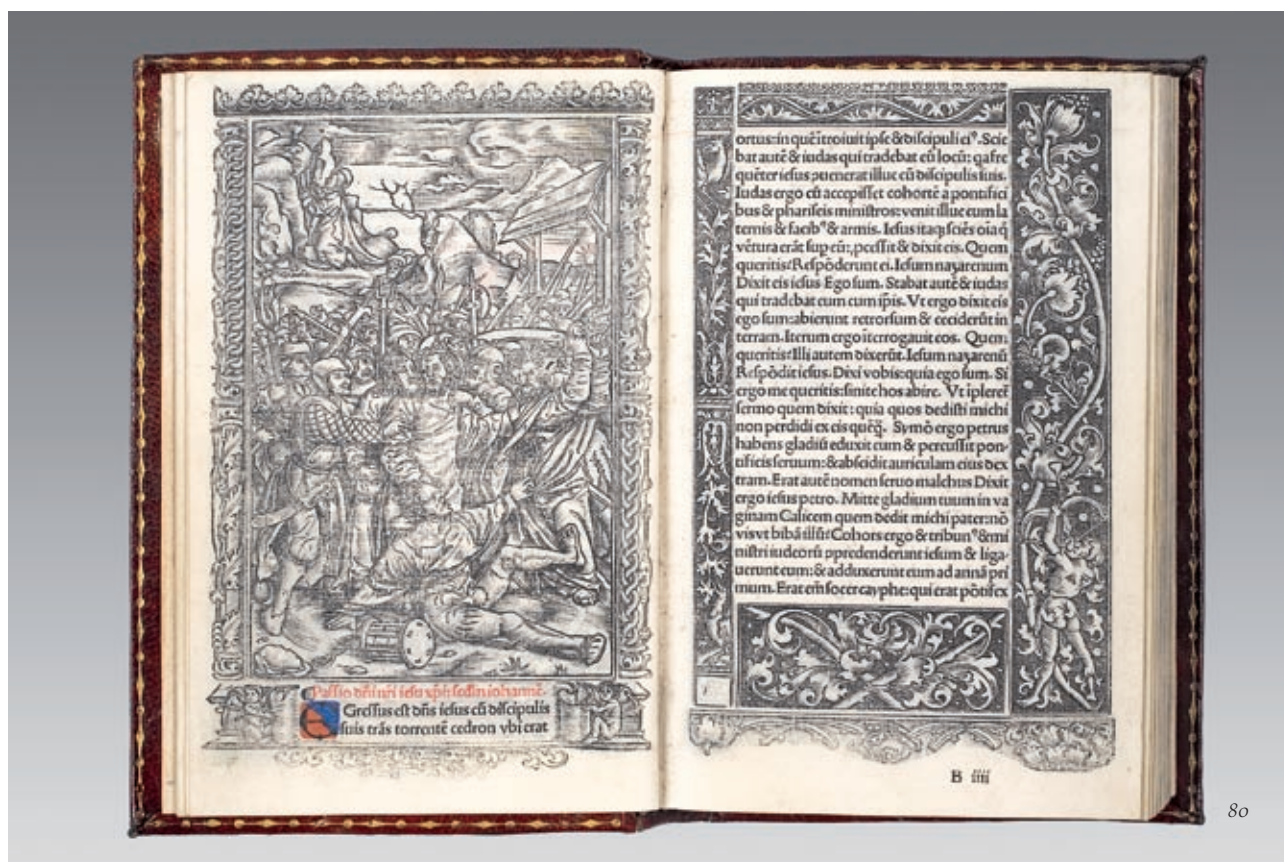 Passio dñi nr̃i iesu xp̃i: scd̃m iohannē.
EGressus est dñs iesus cū discipulis
suis trās torrentē cedron vbi erat
ortus: in quē ītroiuit ipse & discipuli eiꝰ. Scie
bat autē & iudas qui tradebat eū locū: qa fre
quēter iesus ꝓuenerat illuc cū discipulis suis.
Iudas ergo cū accepisset cohortē a pontifici
bus & phariseis ministros: venit illuc cum la
ternis & facibꝰ & armis. Iesus itaqꝫ sciēs oīa q̄
vētura erāt sup eū: ꝓcessit & dixit eis. Quem
queritis? Respōderunt ei. Iesum nazarenum
Dixit eis iesus Ego sum. Stabat autē & iudas
qui tradebat eum cum ip̄is. Vt ergo dixit eis
ego sum: abierunt retrorsum & ceciderūt in
terram. Iterum ergo īterrogauit eos. Quem
queritis? Illi autem dixerūt. Iesum nazarenū
Respōdit iesus. Dixi vobis: quia ego sum. Si
ergo me queritis: sinite hos abire. Vt īpleret̄
sermo quem dixit: quia quos dedisti michi
non perdidi ex eis quēq̄. Symō ergo petrus
habens gladiū eduxit eum & percussit pon-
tificis seruum: & abscidit auriculam eius dex
tram. Erat autē nomen seruo malchus Dixit
ergo iesus petro. Mitte gladium tuum in va
ginam Calicem quem dedit michi pater: nō
vis vt bibā illū? Cohors ergo & tribunꝰ & mi
nistri iudeorū ppredenderunt iesum & liga-
uerunt eum: & adduxerunt eum ad annā pri
mum. Erat em̄ socer cayphe: qui erat pōtifex
B iiii
80